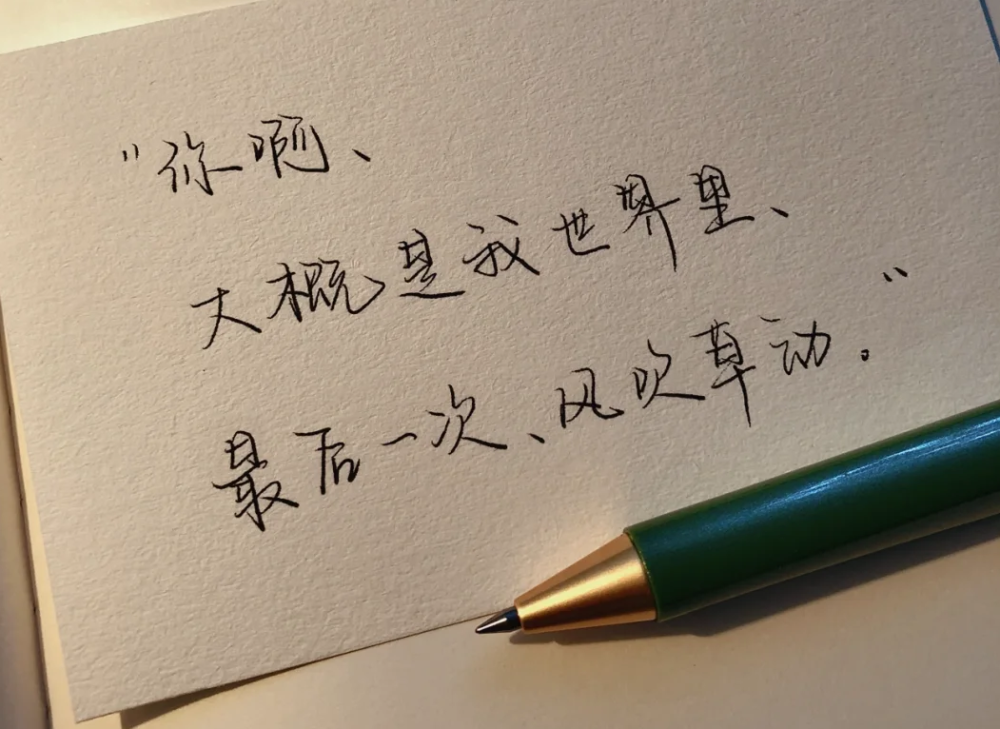 “你啊、
大概是我世界里、
最后一次、风吹草动。”